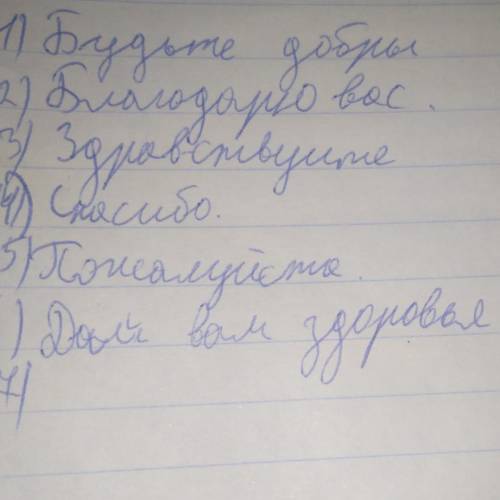 1) Будьте добры
2) Благодарю вас.
3) Здравствуйте
4) Спасибо.
5) Пожалуйста.
) Дай вам здоровья
7)